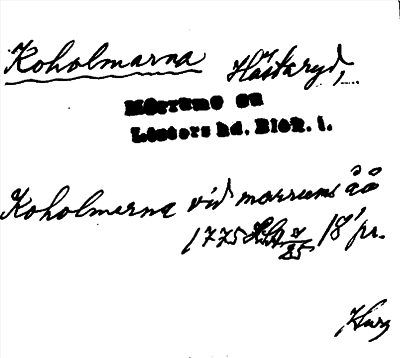 Koholmarna Hästaryd,
Mörrums sn
Listers hd. Blek. l.
Koholmarna vid morrums åå
1775 18' pr.